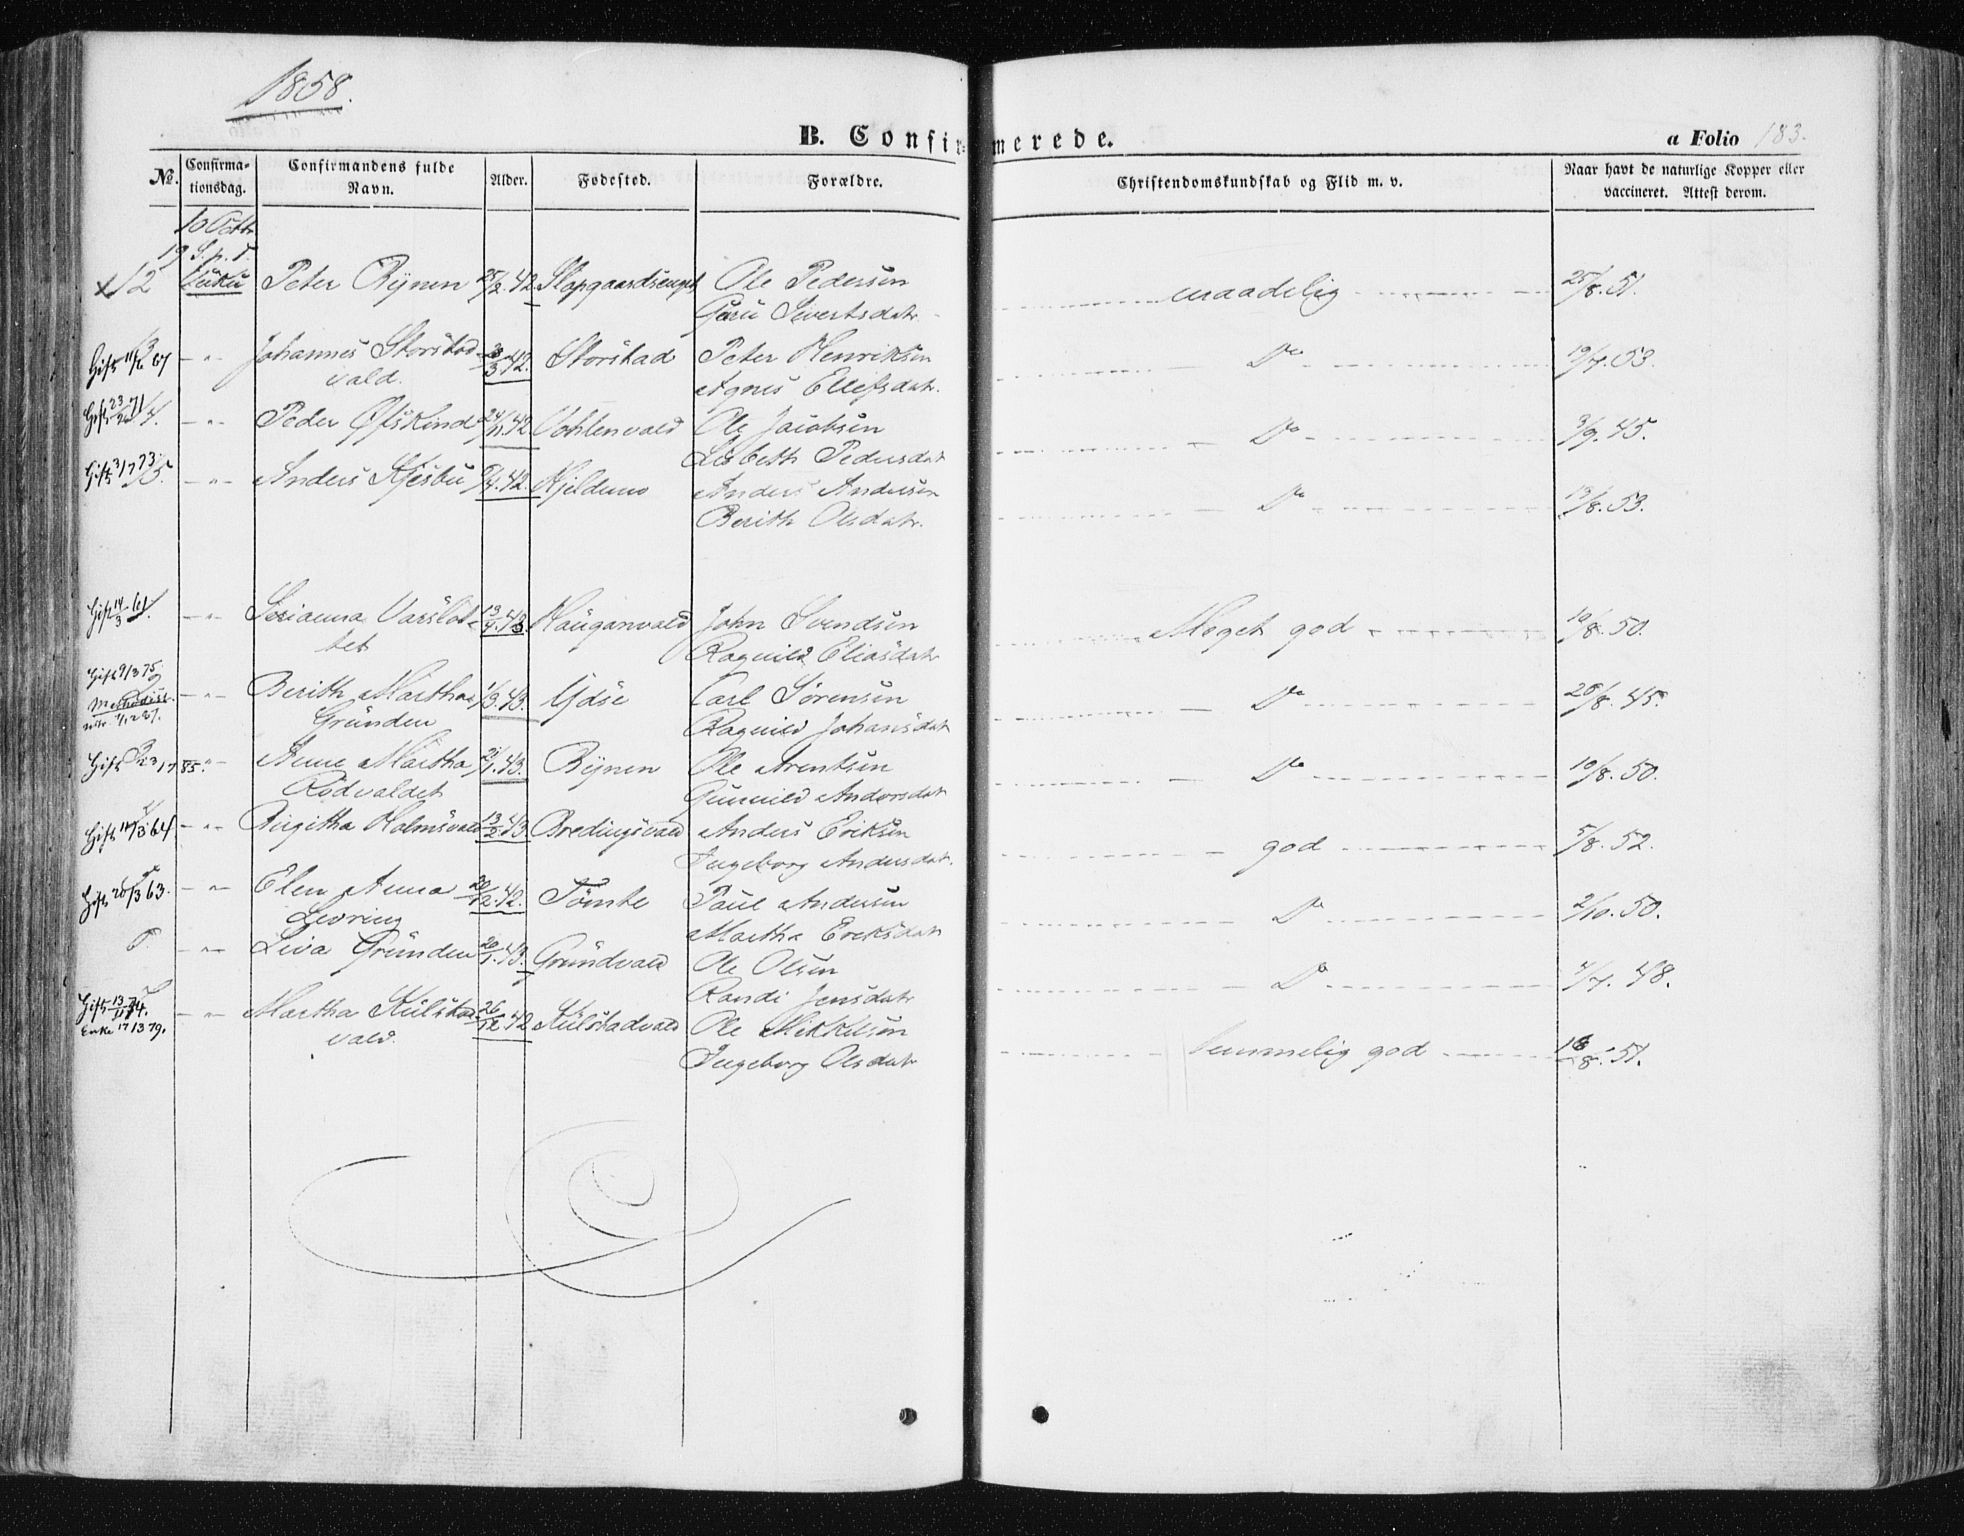 1858.
B. Confirmerede.
a Folio 183.
No. Confirmationsdag. Confirmandens fulde Navn. Alder. Fødested. Forældre. Christendomskundskab og Flid m. v. Naar havt de naturlige Kopper eller vaccineret. Attest derom.
10 Octbr
19 S. p. T.
12 Peter Bynen 25/2.42 Ole Pedersen maadelig 25/8.51.
Guru Sivertsdatr
Gift 67 - " - Johannes Storstad 3.42. Storstad Peter Henriksen - Do - 19/7.53.
vald. Agnes Ellefsdatr.
Gift 71 4. - " - Peder Øfskind 24/11.42 Ole Jacobsen - Do - 3/9.45.
Lisbeth Pedersdatr
Gift 3/7 73 5. - " - Anders Kjesbu 4.42. Anders Andersen - Do - 13/8.53.
Berith Olsdatr.
Gift 14/3 - " - Varslot 13/4.43. Hauganvald John Svendsen Meget god 10/8.50.
tet Ragnild Eliasdatr
Gift 9/3 75 - " - Berith Martha 1/3.43. Ydse Carl Sørensen - Do - 20/8.45.
Grunden Ragnild Johansdatr
Gift 85. - " - Anne Martha 1.43. Bynen Ole Arentsen - Do - 10/8.50.
Rødvaldet Gunnild Andorsdatr
Gift 3 64 - " - Birgitha Holmsvald 13/2.43. Bredingsvald Anders Eriksen - god - 5/8.52.
Ingeborg Andersdatr.
Gift 3 63. - " - Elen Anna 20/12.42. Tømte Paul Andersen - Do - 2/10.50.
Levring Martha Eriksdatr
- " - Liva Grunden 20/1.43. Grundvald Ole Olsen - Do - 7.48.
Randi Jensdatr
Gift 13/11 74. - " - Martha Kulstad 26/12.42 Kulstadvald Ole Mikkelsen temmelig god 8.51.
Enke 17/3 79. vald. Ingeborg Olsdatr